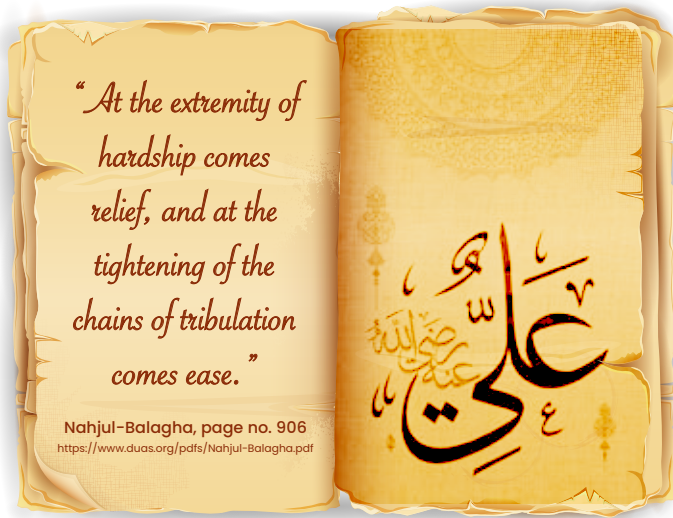 “ At the extremity of
hardship comes
relief, and at the
tightening of the
chains of tribulation
comes ease. ”
Nahjul-Balagha, page no. 906
https://www.duas.org/pdfs/Nahjul-Balagha.pdf
عَلِيٌّ
رضي الله عنه